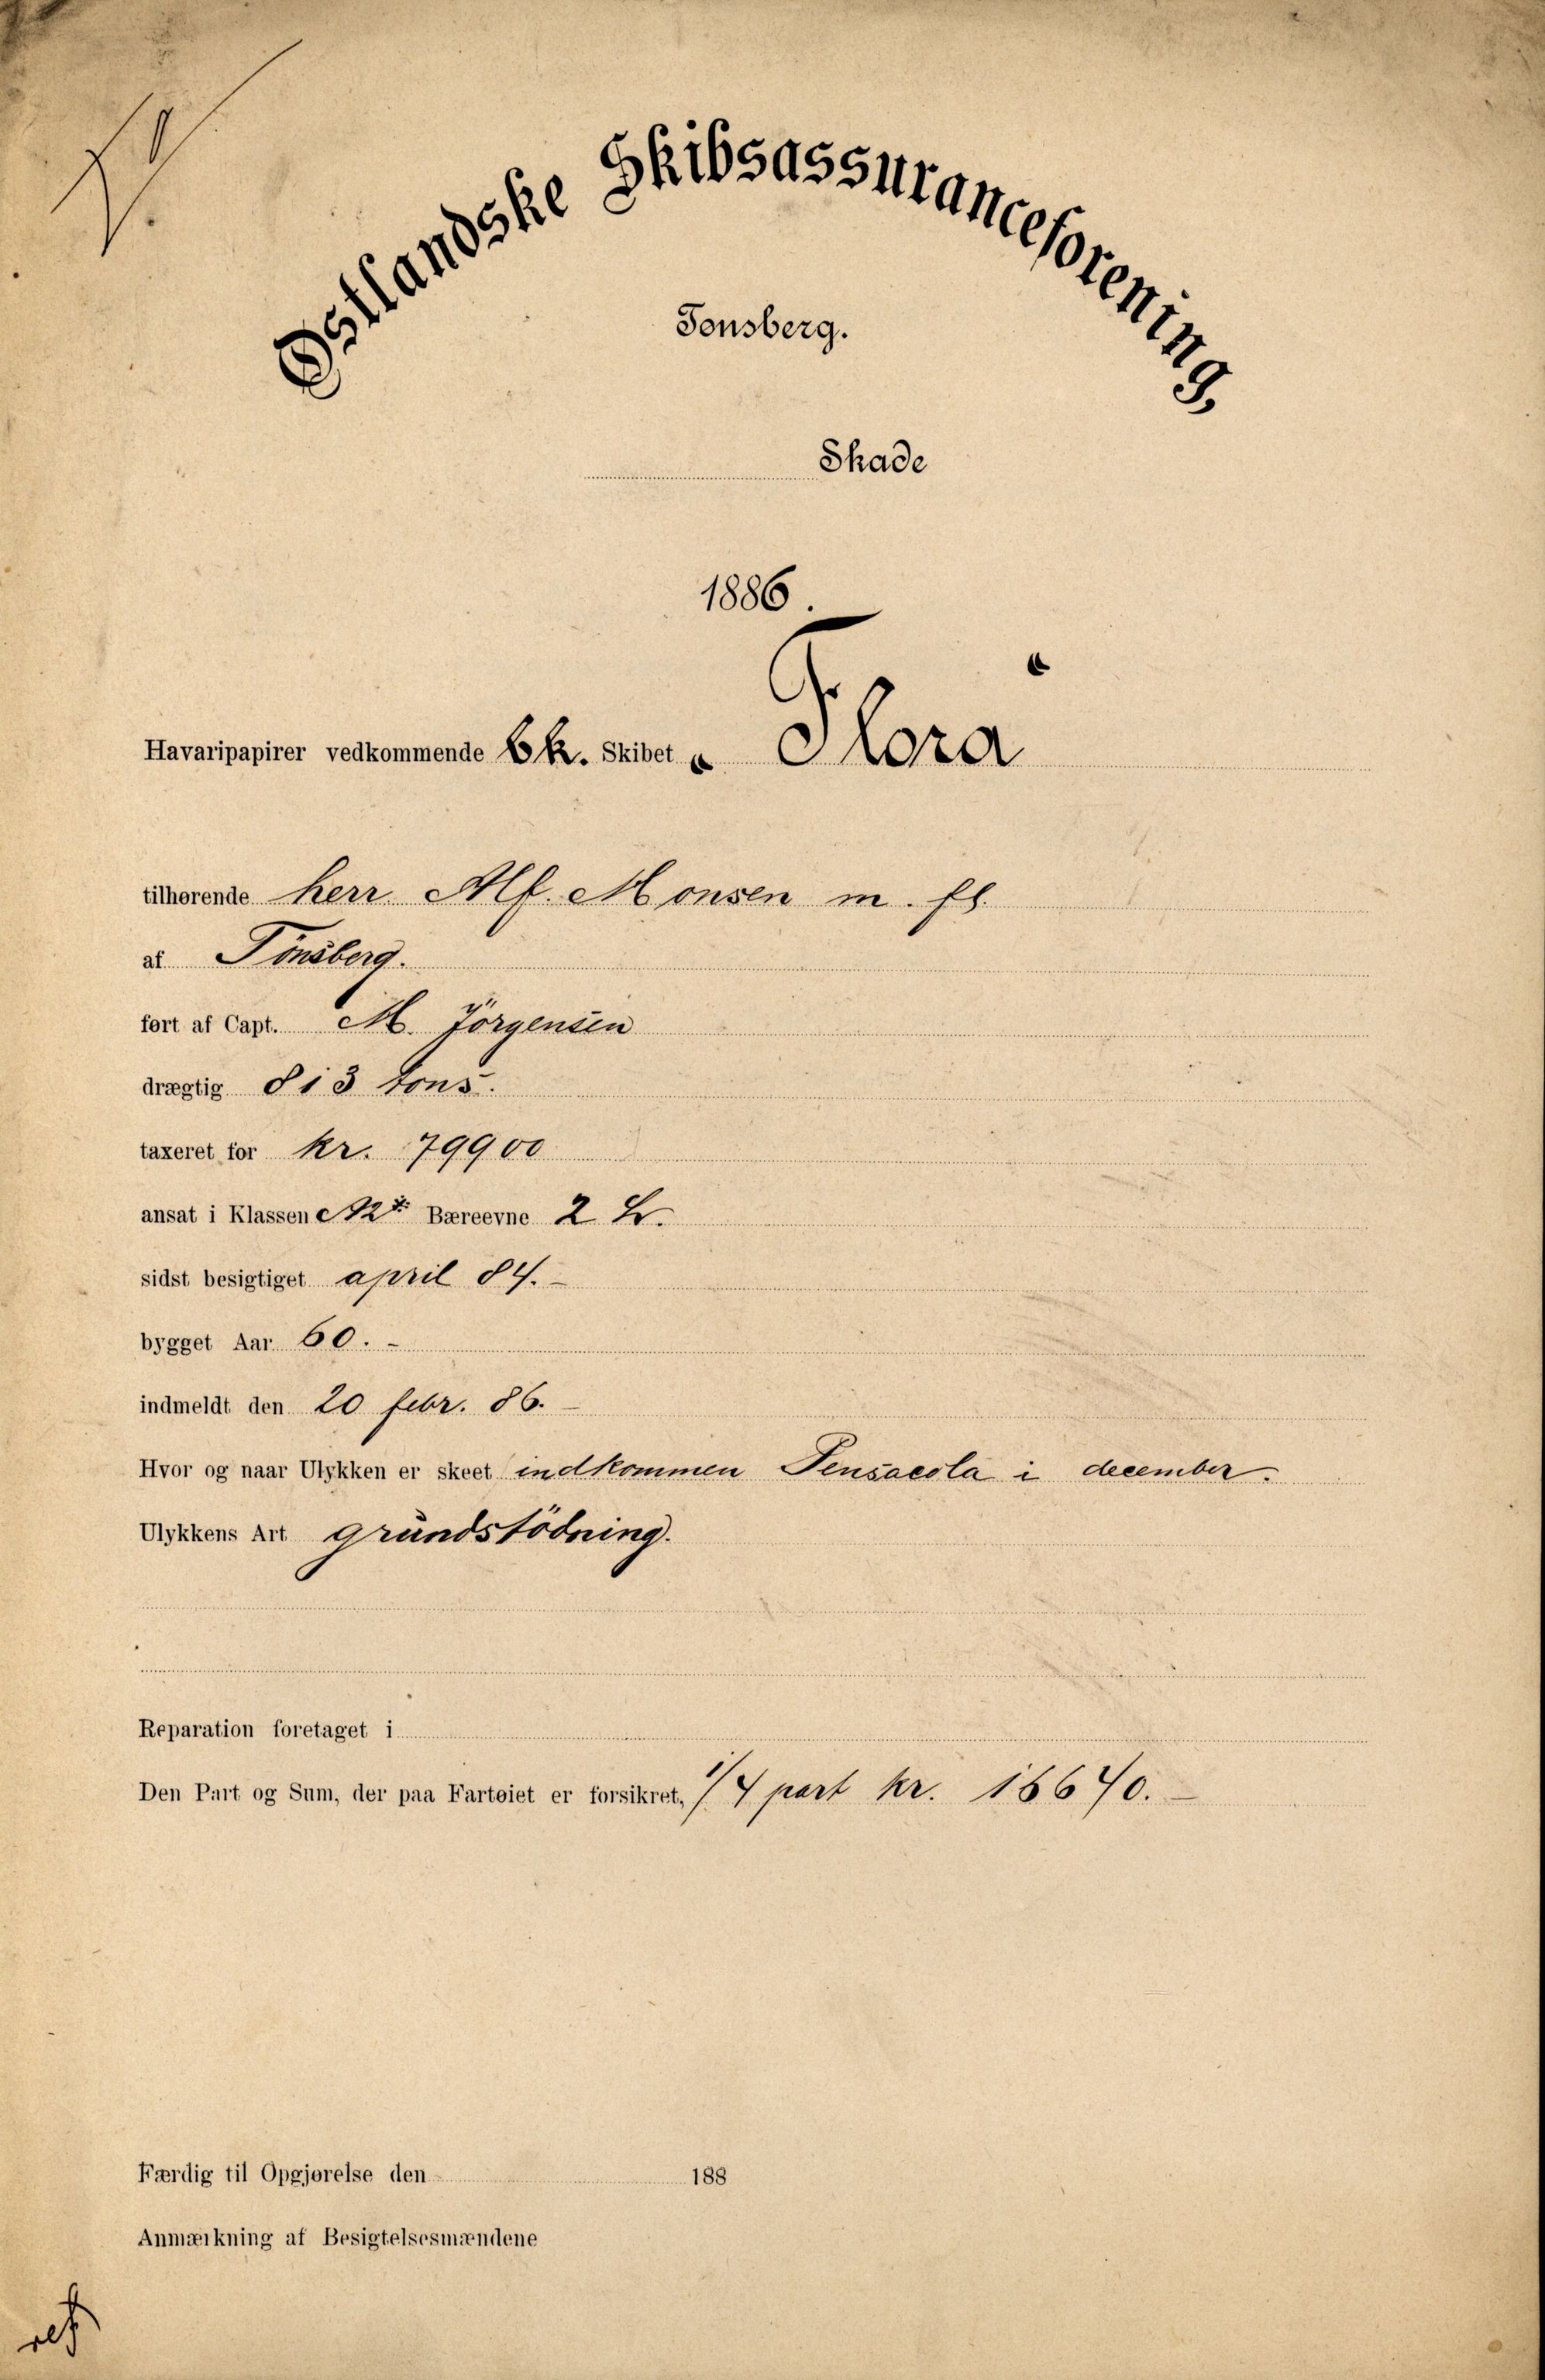 Østlandske Skibsassuranceforening,
Tonsberg.
Skade
1886.
Havaripapirer vedkommende Bk. Skibet „Flora“
tilhørende herr Alf. Monsen m. fl.
af Tönsberg.
ført af Capt. M. Jörgensen
drægtig 813 tons.
taxeret for kr. 79900
ansat i Klassen Bæreevne 2
sidst besigtiget april 84. –
bygget Aar 60. –
indmeldt den 20 febr. 86. –
Hvor og naar Ulykken er skeet indkommen Pensacola i december.
Ulykkens Art grundstödning.
Reparation foretaget i
Den Part og Sum, der paa Fartøiet er forsikret, 1/4 part kr. 16640. –
Færdig til Opgjørelse den 188
Anmærkning af Besigtelsesmændene